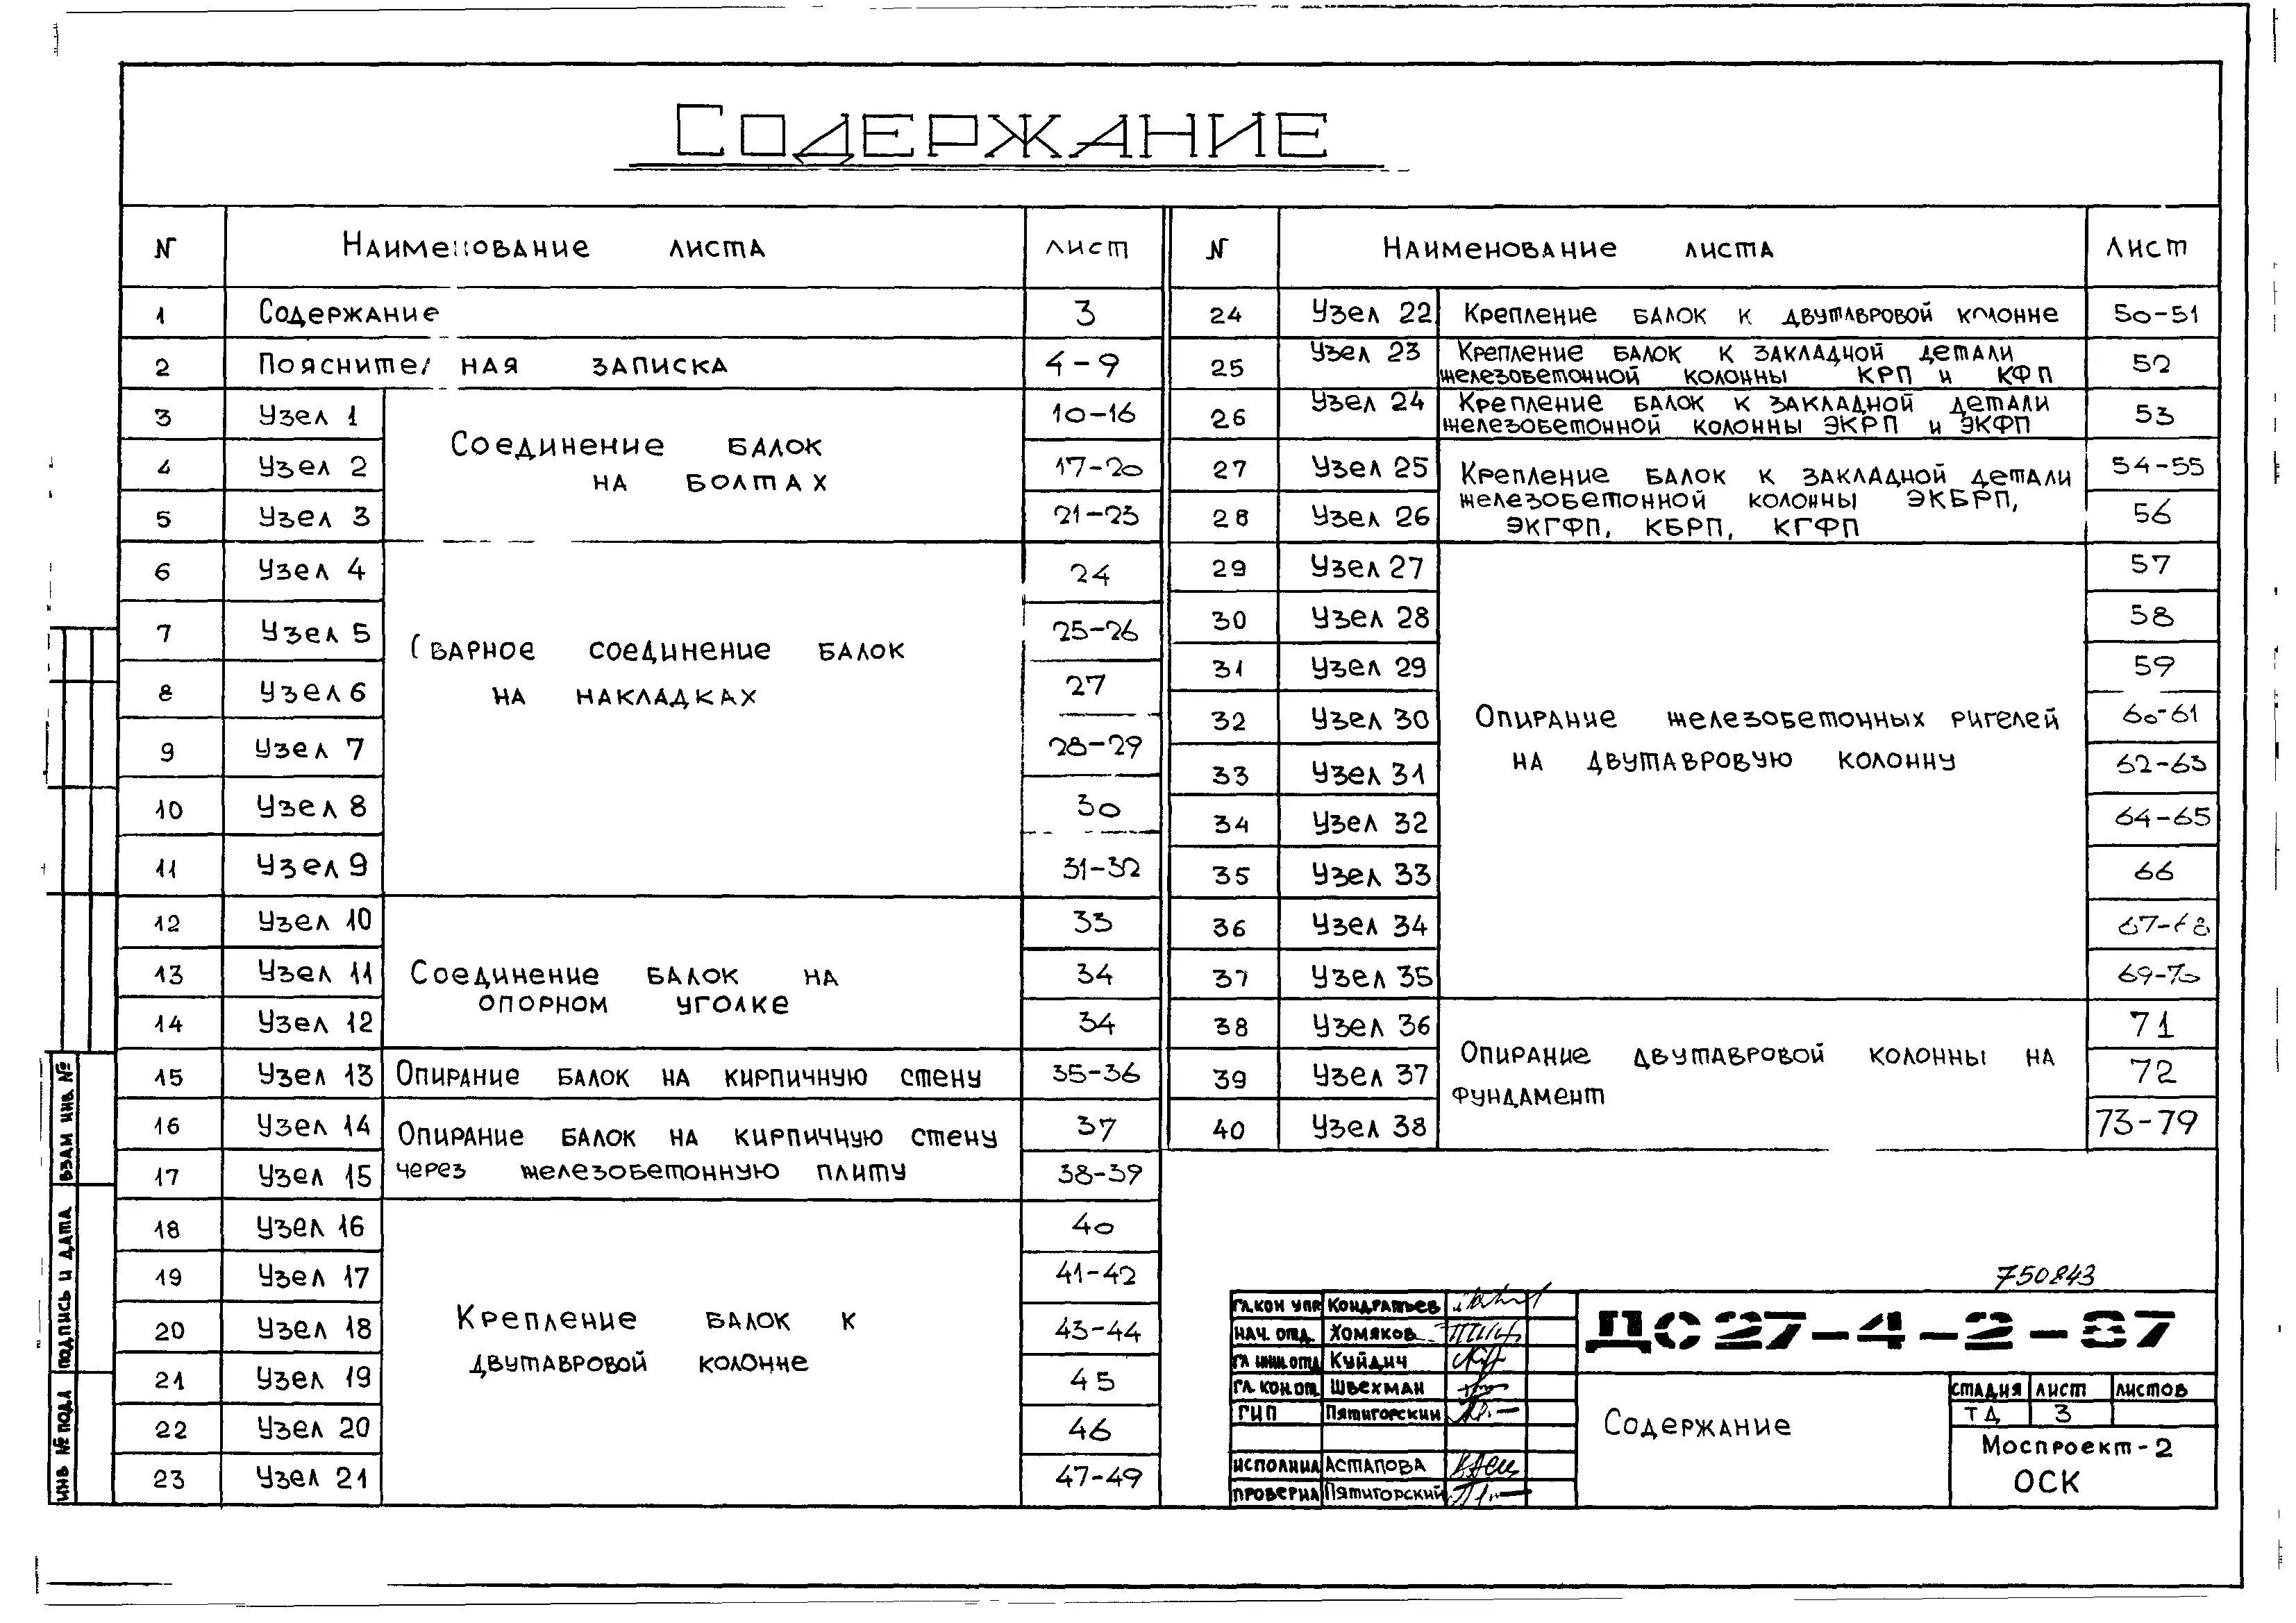 Содержание
№ Наименование листа лист
1 Содержание 3
2 Пояснительная записка 4-9
3 Узел 1 10-16
Соединение балок
на болтах
4 Узел 2 17-20
5 Узел 3 21-23
6 Узел 4 24
7 Узел 5 25-26
Сварное соединение балок
на накладках
8 Узел 6 27
9 Узел 7 28-29
10 Узел 8 30
11 Узел 9 31-32
12 Узел 10 33
13 Узел 11 34
Соединение балок на
опорном уголке
14 Узел 12 34
15 Узел 13 Опирание балок на кирпичную стену 35-36
16 Узел 14 37
Опирание балок на кирпичную стену
через железобетонную плиту
17 Узел 15 38-39
18 Узел 16 40
19 Узел 17 41-42
20 Узел 18 43-44
Крепление балок к
двутавровой колонне
21 Узел 19 45
22 Узел 20 46
23 Узел 21 47-49
№ Наименование листа Лист
24 Узел 22 Крепление балок к двутавровой колонне 50-51
25 Узел 23 Крепление балок к закладной детали 52
железобетонной колонны КРП и КФП
26 Узел 24 Крепление балок к закладной детали 53
железобетонной колонны ЭКРП и ЭКФП
27 Узел 25 54-55
Крепление балок к закладной детали
железобетонной колонны ЭКБРП,
ЭКГФП, КБРП, КГФП
28 Узел 26 56
29 Узел 27 57
30 Узел 28 58
31 Узел 29 59
32 Узел 30 60-61
Опирание железобетонных ригелей
на двутавровую колонну
33 Узел 31 62-63
34 Узел 32 64-65
35 Узел 33 66
36 Узел 34 67-68
37 Узел 35 69-70
38 Узел 36 71
Опирание двутавровой колонны на
фундамент
39 Узел 37 72
40 Узел 38 73-79
750843
гл.кон упр Кондратьев
нач. отд. Хомяков
гл инж.отд Куйдич
гл. кон.от. Швехман
ГИП Пятигорский
исполнил Астапова
проверил Пятигорский
ДС 27-4-2-87
Содержание
стадия лист листов
ТД 3
Моспроект-2
ОСК
взам инв №
подпись и дата
инв № подл